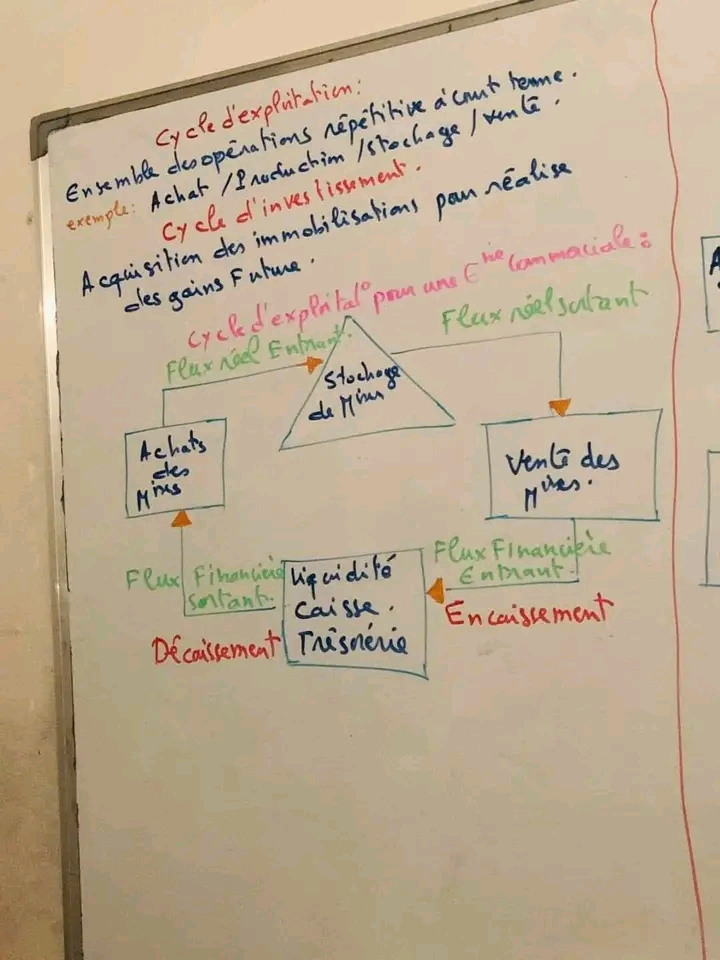 Cycle d'exploitation:
Ensemble des opérations répétitive à court terme.
exemple: Achat / Production / Stockage / vente.
Cycle d'investissement.
Acquisition des immobilisations pour réalise
des gains Future.
Cycle d'exploitat° pour une Eⁿⁱᵉ Commerciale:
Flux réel Entrant.
Flux réel sortant
Stockage
de Mˢᵉˢ
Achats
des
Mˢᵉˢ
Vente des
Mˢᵉˢ.
Flux Financière
sortant.
Liquidité
Caisse.
Trésorérie
Flux Financière
Entrant.
Décaissement
Encaissement
A